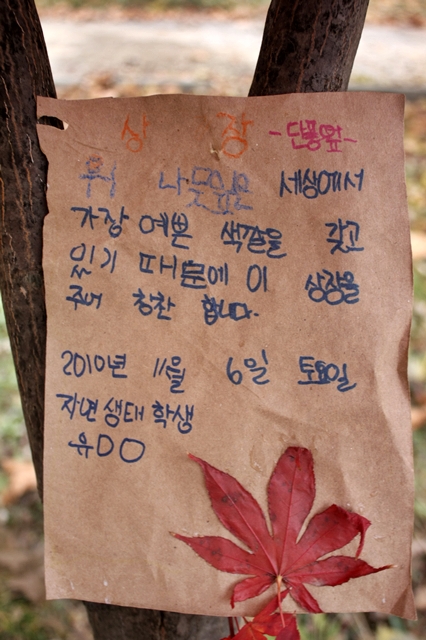 상 장 -단풍잎-
위 나뭇잎은 세상에서
가장 예쁜 색깔을 갖고
있기 때문에 이 상장을
주어 칭찬 합니다.
2010년 11월 6일 토요일
자연 생태 학생
유OO